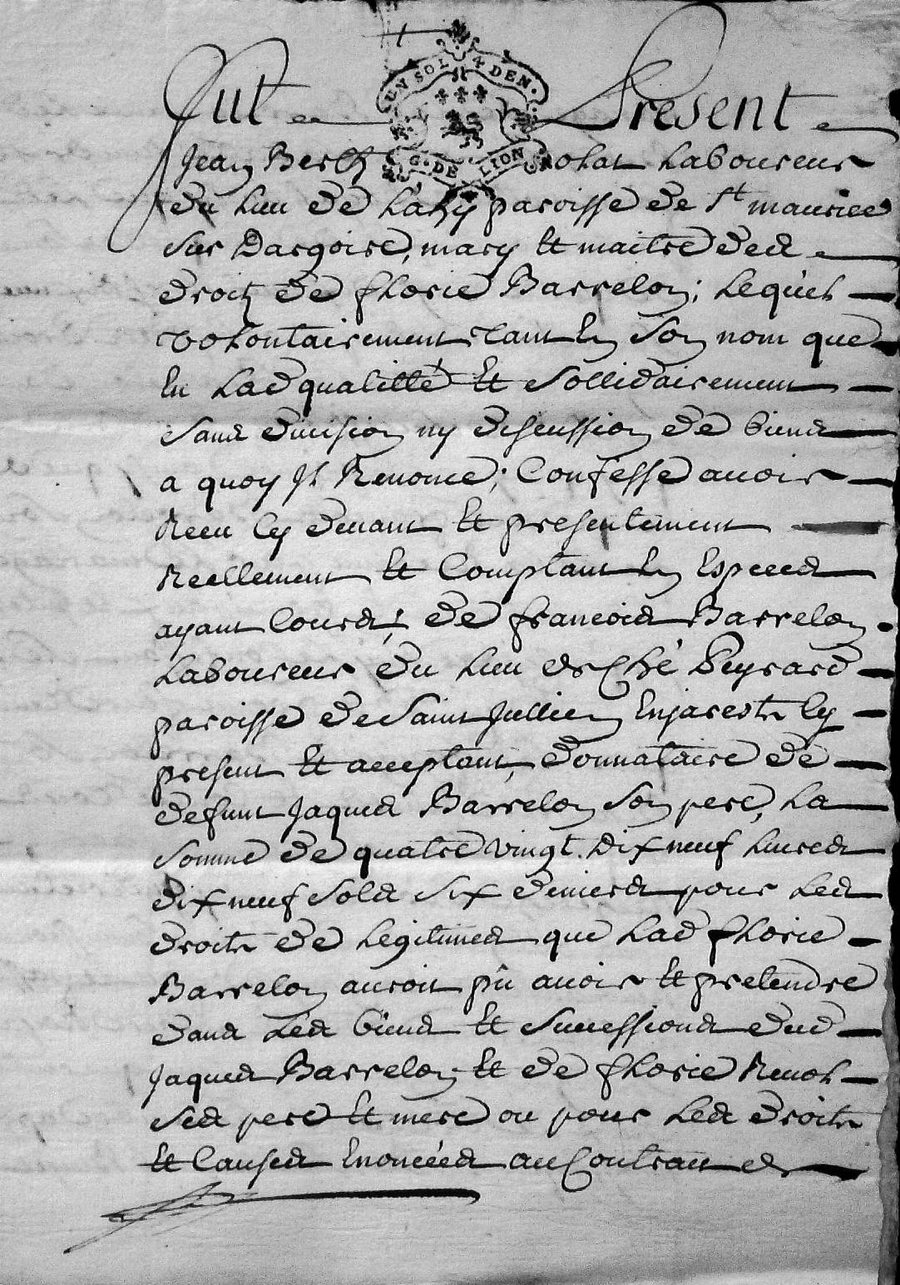 UN SOL 4 DEN.
G. DE LION
Fut Present
Jean Berth
Laboureur
du lieu de Lahy paroisse de St maurice
sur Dargoire, mary et maitre des
droitz de fflorie Barrelon; lequel
volontairement tant en son nom que
En Lad qualitté et sollidairement
sans division ny discussion de biens
a quoy Il Renonce; Confesse avoir
Receu Cy devant et presentement
Reellement et Comptant en Especes
ayant Cours; de francois Barrelon
Laboureur du lieu de Ché Peyrard
paroisse de Saint Jullien Enjarestz Cy
present et acceptant, donnataire de
defunt Jaques Barrelon son pere, La
somme de quatre vingt Dix neuf Livres
dix neuf sols six deniers pour Les
droits de Legitimes que Lad fflorie
Barrelon auroit pû avoir et pretendre
dans Les biens et successions dud
Jaques Barrelon et de fflorie
ses pere et mere ou pour Les droits
et Causes Enoncées au Contract de